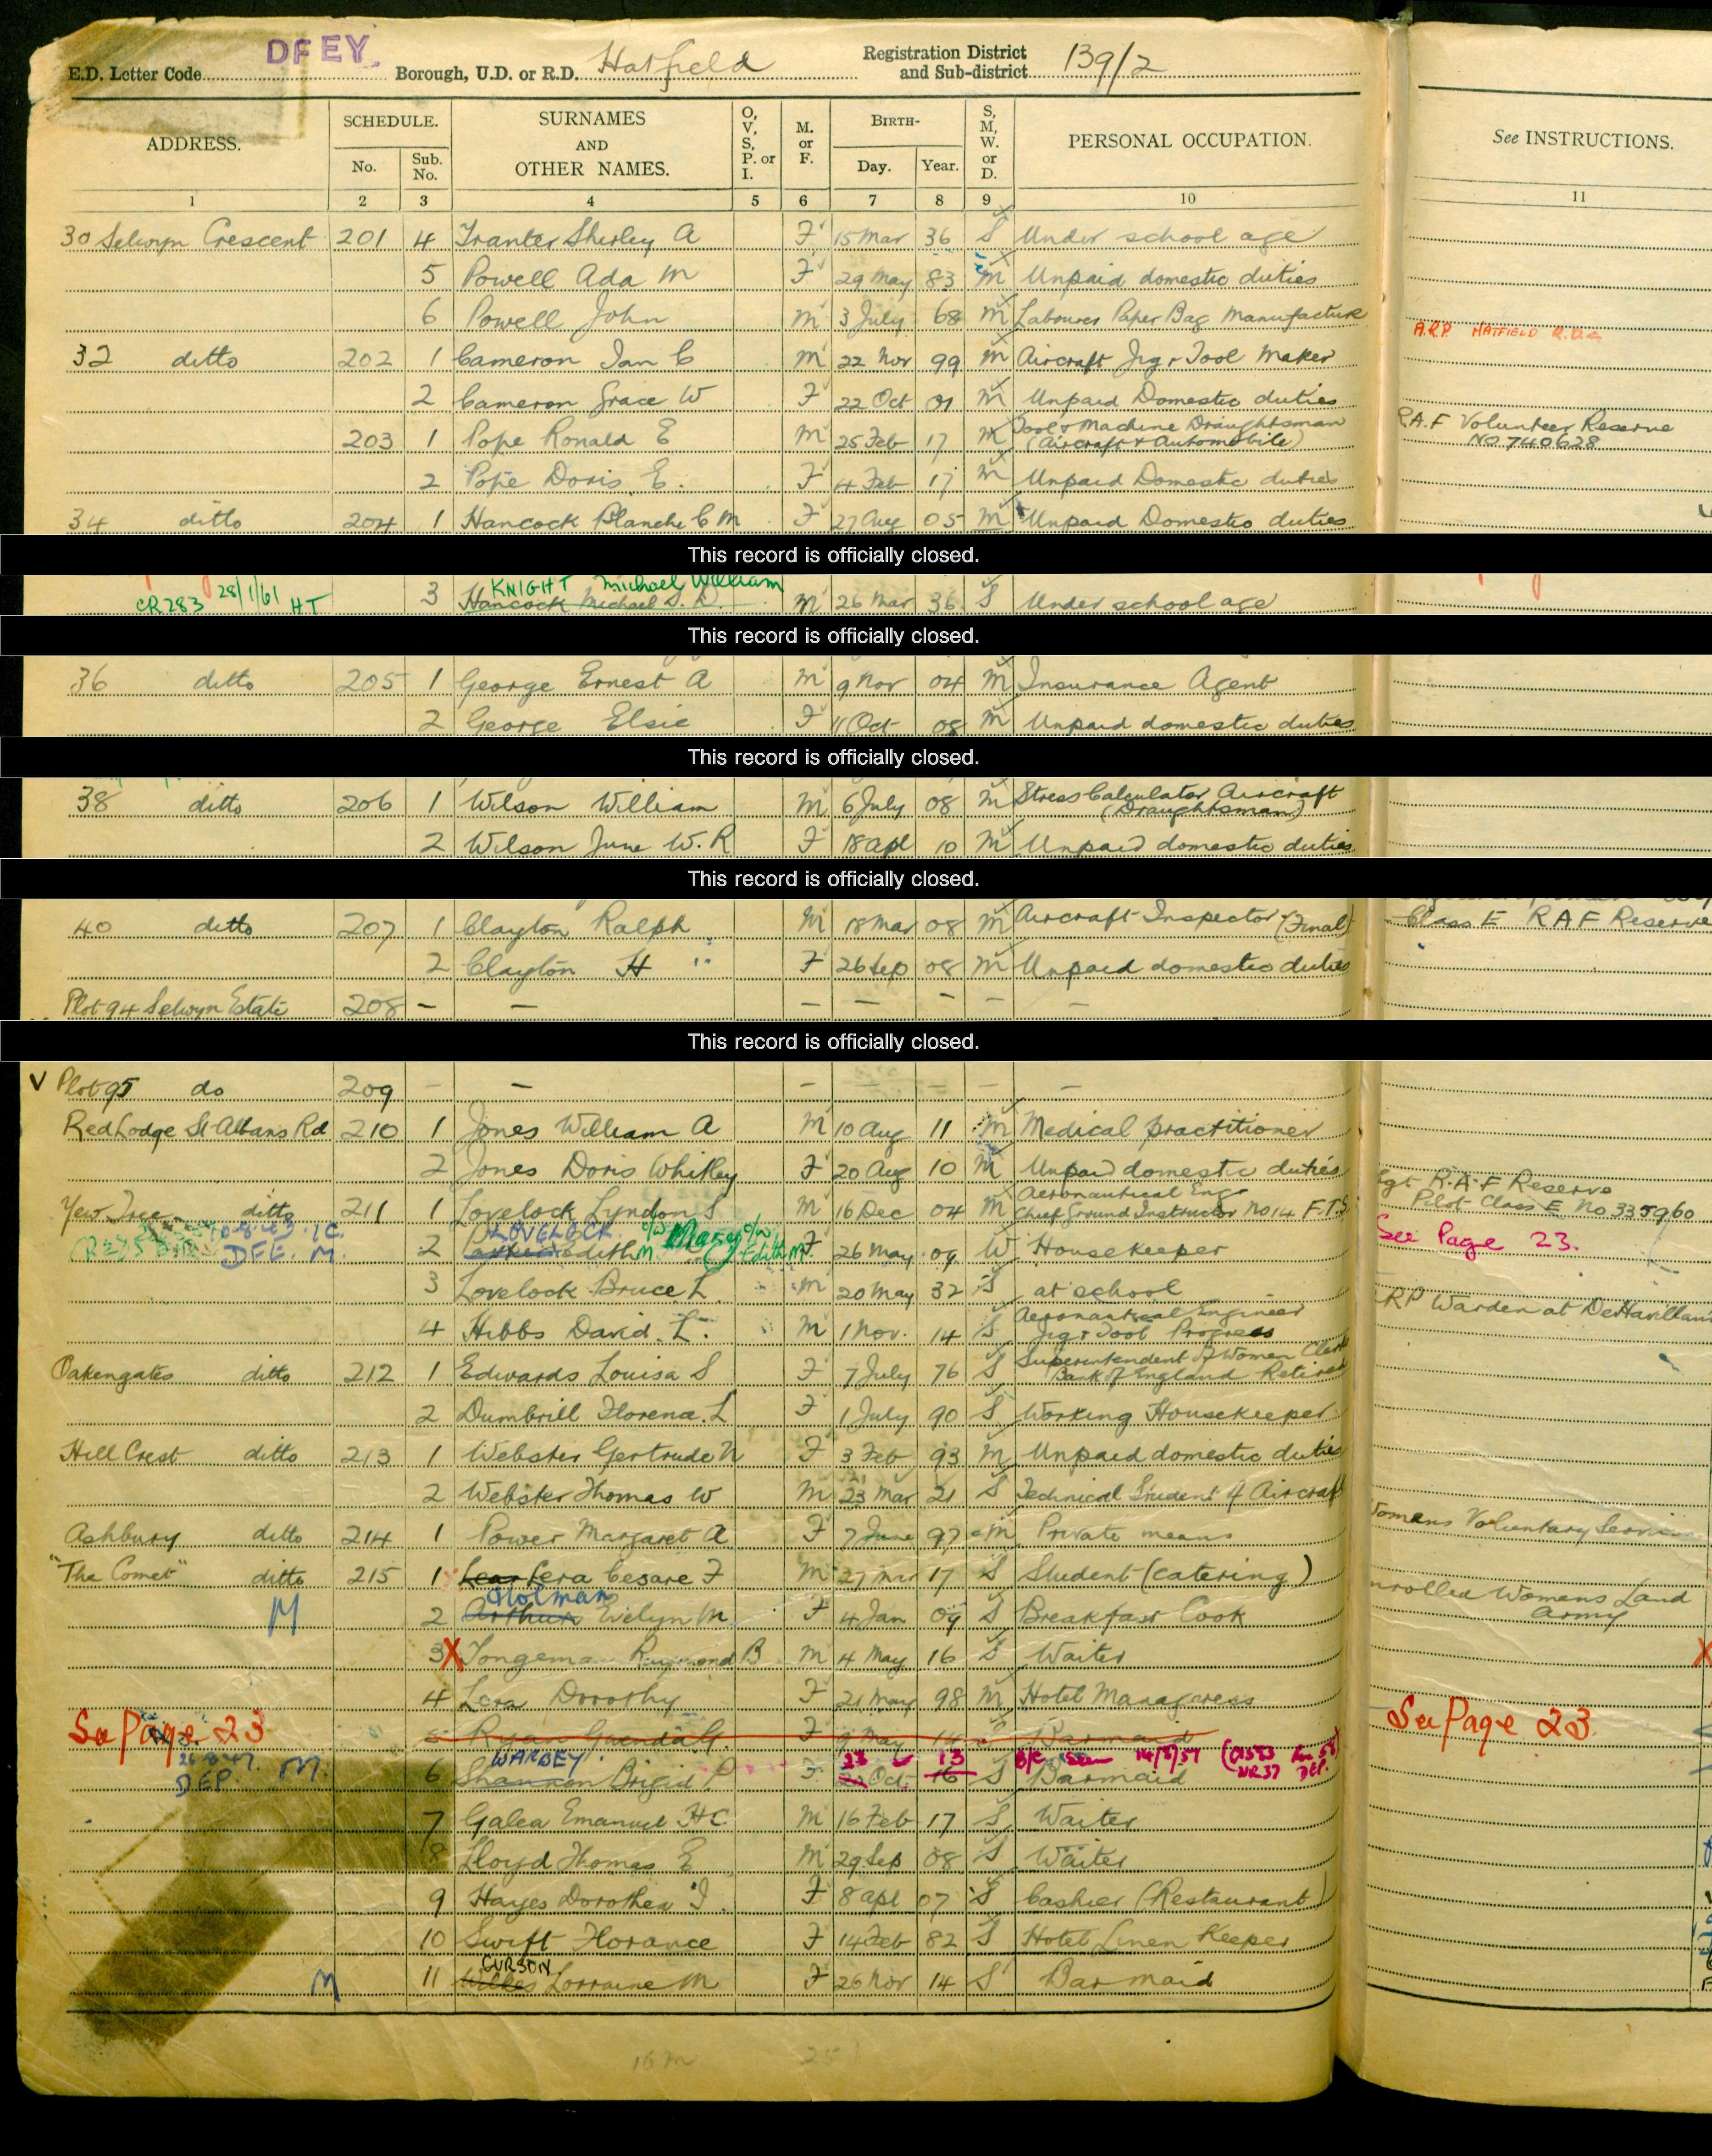 DFEY.
E.D. Letter Code
Borough, U.D. or R.D. Hatfield
Registration District and Sub-district 139/2
ADDRESS. SCHEDULE. No. Sub. No. SURNAMES AND OTHER NAMES. O, V, S, P. or I. M. or F. BIRTH- Day. Year. S, M, W. or D. PERSONAL OCCUPATION. See INSTRUCTIONS.
1 2 3 4 5 6 7 8 9 10 11
30 Selwyn Crescent 201 4 Tranter Shirley A F 15 Mar 36 S Under school age
5 Powell Ada M F 29 May 83 M Unpaid domestic duties
6 Powell John M 3 July 68 M Labourer Paper Bag Manufacture
A.R.P. HATFIELD
32 ditto 202 1 Cameron Ian C M 22 Nov 99 M Aircraft Jig & Tool Maker
2 Cameron Grace W F 22 Oct 01 M Unpaid Domestic duties
203 1 Pope Ronald E M 25 Feb 17 M Tool & Machine Draughtsman (Aircraft & Automobile) R.A.F Volunteer Reserve No 740628
2 Pope Doris E. F 4 Feb 17 M Unpaid Domestic duties
34 ditto 204 1 Hancock Blanche C M F 27 Aug 05 M Unpaid Domestic duties
This record is officially closed.
CR283 28/1/61 HT KNIGHT Michael William
3 Hancock Michael M 26 Mar 36 S Under school age
This record is officially closed.
36 ditto 205 1 George Ernest A M 9 Nov 04 M Insurance Agent
2 George Elsie F 11 Oct 08 M Unpaid domestic duties
This record is officially closed.
38 ditto 206 1 Wilson William M 6 July 08 M Stress Calculator Aircraft (Draughtsman)
2 Wilson June W. R F 18 Apl 10 M Unpaid domestic duties
This record is officially closed.
40 ditto 207 1 Clayton Ralph M 18 Mar 08 M Aircraft Inspector (Final) Class E RAF Reserve
2 Clayton H F 26 Sep 08 M Unpaid domestic duties
Plot 94 Selwyn Estate 208 - - - - - - -
This record is officially closed.
V Plot 95 do 209 - - - - - - -
Red Lodge St Albans Rd 210 1 Jones William A M 10 Aug 11 M Medical practitioner
2 Jones Doris Whitley F 20 Aug 10 M Unpaid domestic duties
Yew Tree ditto 211 1 Lovelock Lyndon S M 16 Dec 04 M Aeronautical Engr Chief Ground Instructor No 14 F.T.S. Sgt R.A.F Reserve Pilot Class E No 335960
DFE. M. 2 LOVELOCK Edith M Mary Edith M. F 26 May 09 W Housekeeper See Page 23.
3 Lovelock Bruce L M 20 May 32 S at school
4 Hibbs David. L. M 1 Nov. 14 S Aeronautical Engineer Jig & Tool Progress ARP Warden at DeHavilland
Oakengates ditto 212 1 Edwards Louisa S F 7 July 76 S Superintendent of Women Clerks Bank of England Retired
2 Dumbrill Florence. L F 1 July 90 S Working Housekeeper
Hill Crest ditto 213 1 Webster Gertrude N F 3 Feb 93 M Unpaid domestic duties
2 Webster Thomas W M 23 Mar 21 S Technical Student of Aircraft
Ashbury ditto 214 1 Power Margaret A F 7 June 97 M Private means Womens Voluntary Service
"The Comet" ditto 215 1 Lear Cesare F M 27 Mar 17 S Student (catering)
M 2 Arthur Holman Evelyn M. F 4 Jan 09 S Breakfast Cook Enrolled Womens Land Army
3 X Raymond B M 4 May 16 S Waiter X
4 Dorothy F 21 May 98 M Hotel Manageress
See Page 23 5 Ryan F 9 May 14 Barmaid See Page 23.
26.8.47. DEP. M. 6 Shannon WARBEY. Brigid P F 23 Oct 16 13 S Barmaid B/C Seen 14/8/57 NR37 DEP.
7 Galea Emanuel H C M 16 Feb 17 S Waiter
8 Lloyd Thomas E M 29 Sep 08 S Waiter
9 Hayes Dorothea I. F 8 Apl 07 S Cashier (Restaurant)
10 Swift Florance F 14 Feb 82 S Hotel Linen Keeper
M 11 Wilkes CURSON Lorraine M F 26 Nov 14 S Barmaid
16 M